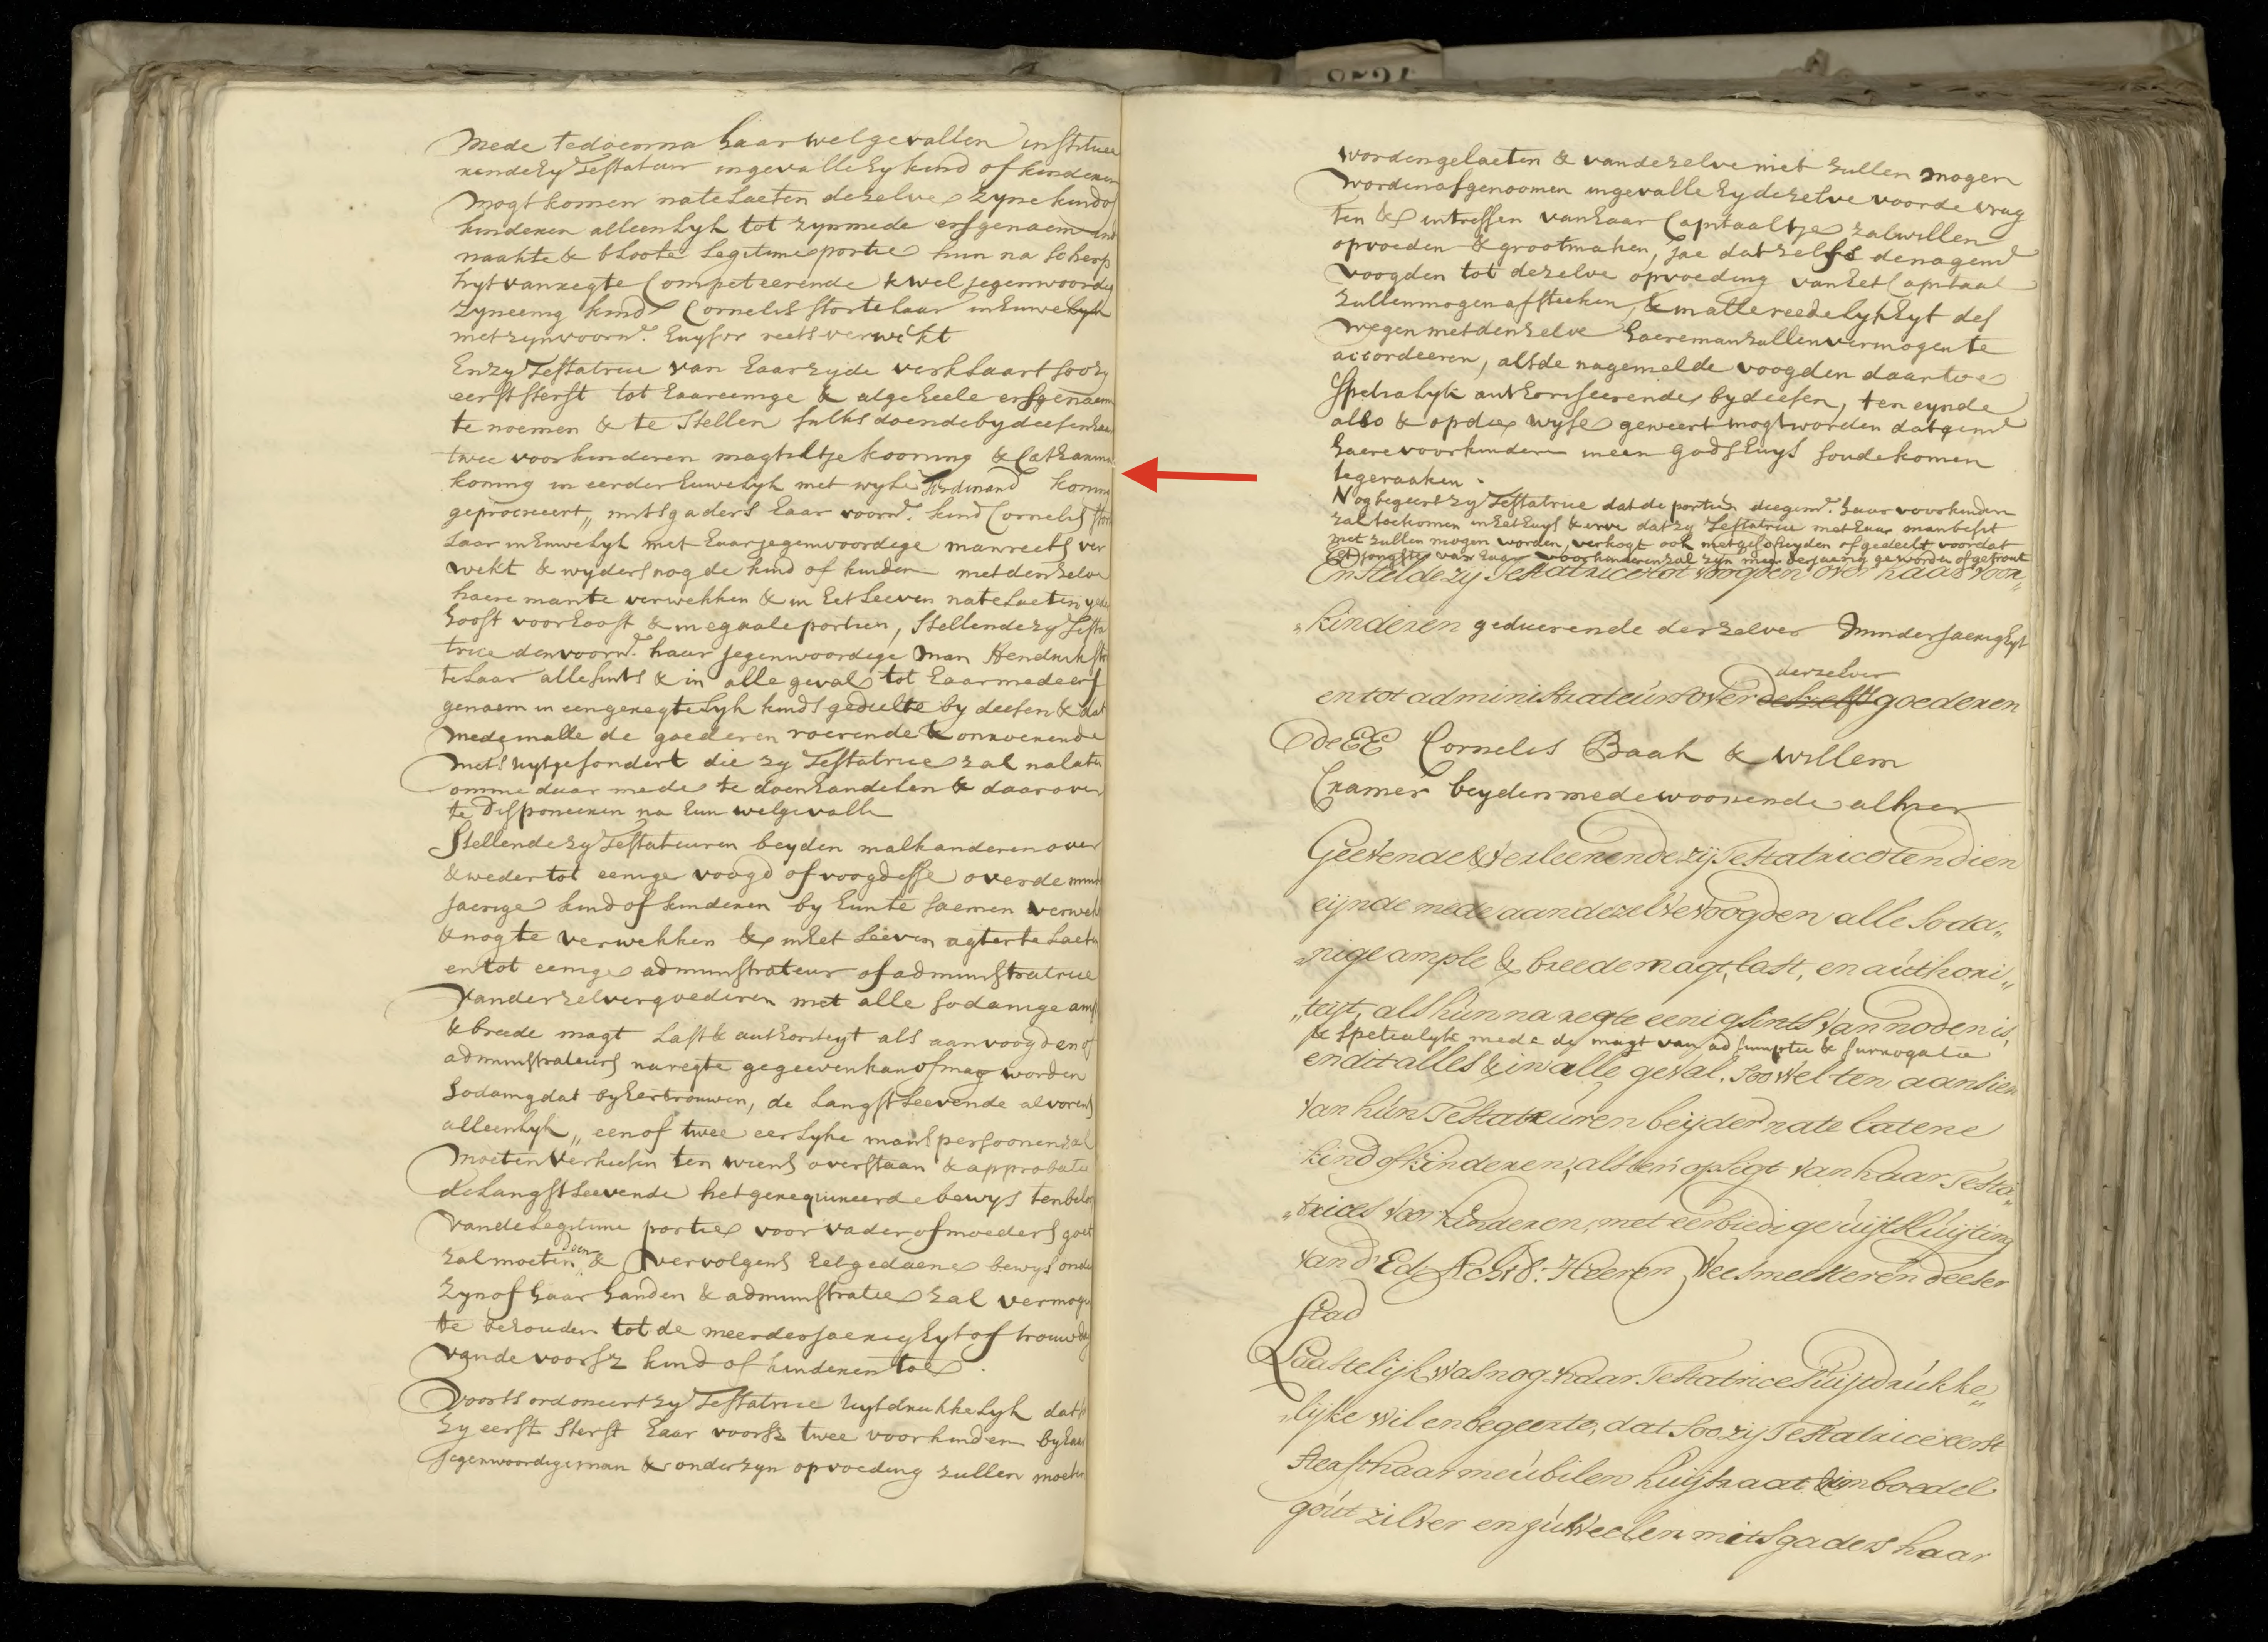 mede te doen na haar welgevallen institue
rende hy Testateur ingevalle hy kind of kinderen
mogt komen nate laeten deselve zyne kind of
kinderen alleenlyk tot zyn mede erfgenaem in de
naakte & bloote Legitime portie hun na scherp
hyt van regte Competeerende & wel jegenwoordig
zyn eenig kind Cornelis Stortelaar in huwelyk
met zyn voorn. huysvr reets verwekt
En zy Testatrice van haar zyde verklaart soo zy
eerst sterft tot haar eenige & algeheele erfgenaem
te noemen & te stellen sulks doende by deesen haar
twee voorkinderen magteltje kooning & Catharina
koning in eerder huwelyk met wyle Ferdinand koning
geprocreert, mitsgaders haar voorn. kind Cornelis Storte
laar in huwelyk met haar jegenwoordige man reets ver
wekt & wyders nog de kind of kinderen met denselve
haere man te verwekken & in het leeven nate laeten yder
hooft voor hooft & in egaale portien, Stellende zy Testa
trice den voorn. haar jegenwoordige man Hendrik Stor
telaar alle sints & in alle geval tot haar mede erf
genaem in een geregtelyk kinds gedeelte by deesen & dat
mede in alle de goederen roerende & onroerende
niets uytgesondert die zy Testatrice zal nalaten
omme daar mede te doen handelen & daar over
te Disponeeren na hun welgevalle
Stellende zy Testateuren beyden malkanderen over
& weder tot eenige voogd of voogdesse over de minder
jaerige kind of kinderen by hun te saemen verwekt
& nog te verwekken & in het leeven agter te laeten
en tot eenige administrateur of administratrice
van derzelver goederen met alle sodanige ample
& breede magt last & authoriteyt als aan voogden of
administrateurs na regte gegeeven kan of mag worden
sodanig dat by hertrouwen, de langstleevende alvorens
alleenlyk, een of twee eerlyke mans persoonen zal
moeten verkiesen ten wiens overstaan & approbatie
de langstleevende het gerequireerde bewys ten belope
van de legitime portie voor vader of moeders goet
zal moeten doen & vervolgens het gedaene bewys onder
zyn of haar handen & administratie zal vermogen
te behouden tot de meerderjaerigheyt of trouwdag
van de voorsz kind of kinderen toe.
Voorts ordonneert zy Testatrice uytdrukkelyk dat so
zy eerst sterft haar voorsz twee voorkinderen by haar
jegenwoordige man & onder zyn opvoeding zullen moeten
worden gelaeten & van dezelve niet zullen mogen
worden afgenoomen ingevalle hy dezelve voor de vrug
ten & intressen van haar Capitaaltje zal willen
opvoeden & grootmaken, jae dat zelfs de nagemd
voogden tot dezelve opvoeding van het Capitaal
zullen mogen afsteeken, & in alle reedelykheyt des
wegen met denzelve haere man zullen vermogen te
accordeeren, als de nagemelde voogden daar toe
specialyk authoriseerende by deesen, ten eynde
also & op die wyse geweert mogt worden dat gemd
haere voorkinderen in een godshuys soude komen
te geraaken.
Nog begeert zy Testatrice dat de portien die gem. haar voorkinderen
zal toekomen in het huys & erve dat zy Testatrice met haar man besit
niet zullen mogen worden verkogt ook niet gescheyden of gedeelt voor dat
het jongste van haar voorkinderen zal zyn meerderjaerig geworden of getrout
En stelde zij Testatrice tot voogden over haar voor„
„kinderen geduerende derzelver minderjaerigheyt
derzelver
en tot administrateurs over deszelfs goederen
De EE Cornelis Baak & Willem
Cramer beyden mede woonende alhier
Geevende & verleenende zij Testatrice ten dien
eijnde mede aan dezelve voogden alle soda„
„nige ample & breede magt, last, en authori„
„teijt, als hun na regte eenigsints van noden is,
& specialyk mede de magt van adsumptie & surrogatie
en dit alles & in alle geval, soo wel ten aansien
van hún Testateúren beijder nate latene
kind of kinderen, als ten opsigt van haar Testa„
„trices voorkinderen, met eerbiedige úijtslúijting
van d'Ed. Achtb: Heeren Weesmeesteren deeser
stad
Laastelijk was nog haar Testatrices úijtdrúkke„
„lijke wil en begeerte, dat soo zij Testatrice eerst
sterft haar meúbilen húijsraat & imboedel
goút zilver en júweelen mitsgaders haar